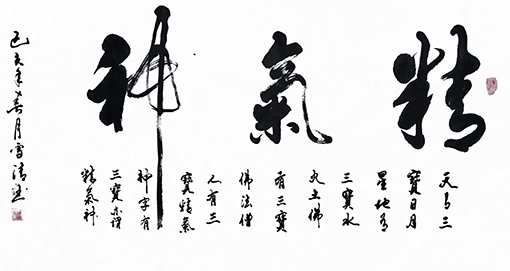 精氣神
天有三
寶日月
星地有
三寶水
火土佛
有三寶
佛法僧
人有三
寶精氣
神字有
三寶
精氣神
己亥年春月雪清